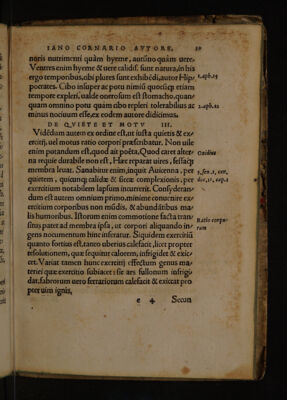 IANO CORNARIO AVTORE.
noris nutrimenti quàm hyeme, autũno quàm uere.
Ventres enim hyeme & uere calidiſ. ſunt natura, in his
ergo temporibus cibi plures ſunt exhibẽdi, autor Hip 1.aph.15
pocrates. Cibo inſuper ac potu nimiũ quoſcũq; etiam
tempore expleri, ualde oneroſum eſt ſtomacho, quan
quam omnino potu quàm cibo repleri tolerabilius ac 2.aph.11
minus nociuum eſſe, ex eodem autore didicimus.
DE QVIETE ET MOTV III.
Vidẽdum autem ex ordine eſt, ut iuſta quietis & ex
ercitij, uel motus ratio corpori præſcribatur. Non uile
enim putandum eſt, quod ait poëta, Quod caret alter- Ouidius
na requie durabile non eſt, Hæc reparat uires, feſſaq́;
membra leuat. Sanabitur enim, inquit Auicenna, per
quietem, quicunq; calidæ & ſiccæ complexionis, per
exercitium notabilem lapſum incurrerit. Conſyderan-
dum eſt autem omnium primo, minime conuenire ex
ercitium corporibus non mũdis, & abundãtibus ma
lis humoribus. Iſtorum enim commotione facta tranſ
itus patet ad membra ipſa, ut corpori aliquando in- Ratio corpo-
gens nocumentum hinc inferatur. Siquidem exercitiũ rum
quanto fortius eſt, tanto uberius calefacit, licet propter
reſolutionem, quæ ſequitur calorem, infrigidet & exic-
cet. Variat tamen hunc exercitij effectum genus ma-
teriei quæ exercitio ſubiacet: ſic ars fullonum infrigi
dat, fabrorum uero ferrariorum calefacit & exiccat pro
pter uim ignis.
e 4 Secun